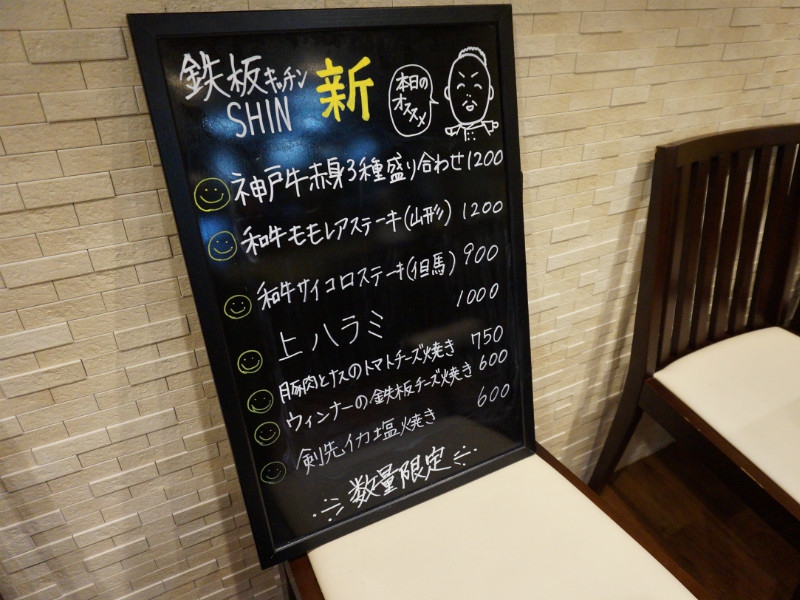 鉄板キッチン 新
SHIN
本日の
オススメ
神戸牛赤身3種盛り合わせ 1200
和牛モモレアステーキ(山形) 1200
和牛サイコロステーキ(但馬) 900
上ハラミ 1000
豚肉とナスのトマトチーズ焼き 750
ウィンナーの鉄板チーズ焼き 600
剣先イカ塩焼き 600
数量限定